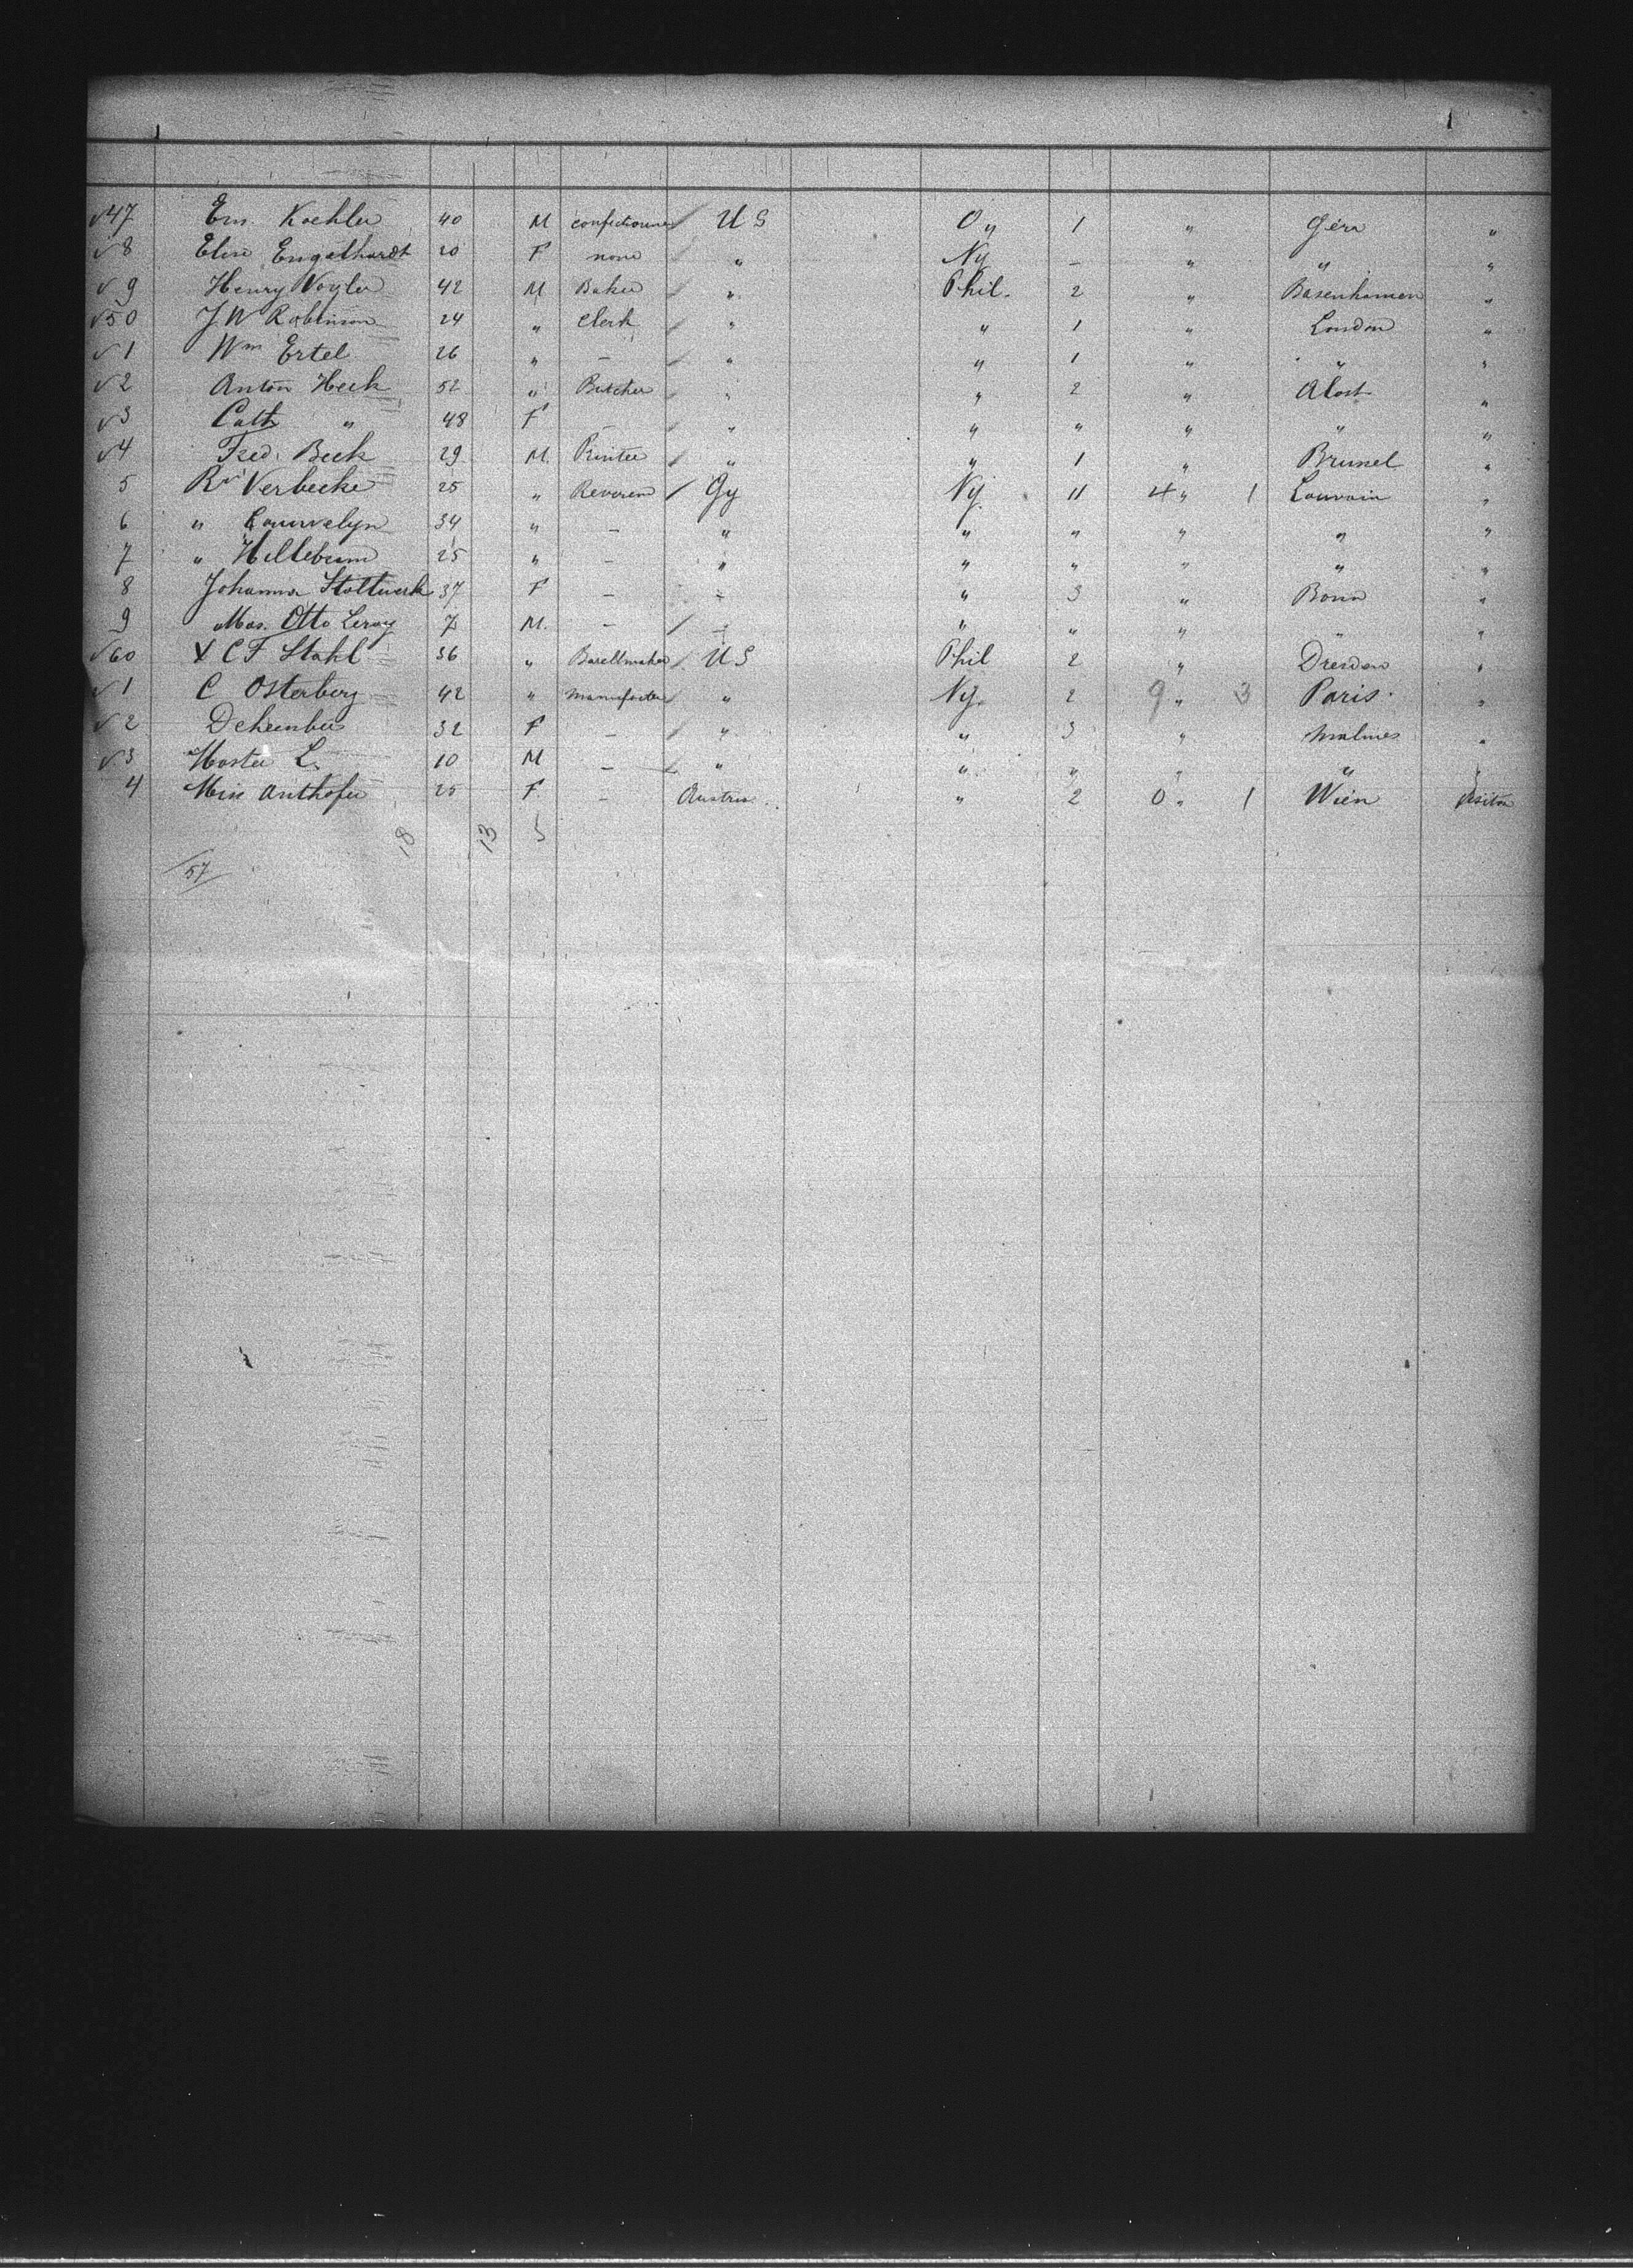 √47 Em. Koehler 40 M confectioner / U S Oy 1 " Gera "
√8 Elise Engelhardt 20 F none / " Ny – " " "
√9 Henry Vogler 42 M Baker / " Phil. 2 " "
√50 J W Robinson 24 " Clerk / " " 1 " London "
√1 Wm Ertel 26 " – / " " 1 " " "
√2 Anton Heck 52 " Butcher / " " 2 " Alost "
√3 Cath " 48 F – " " " " " "
√4 Fred. Beck 29 M. Printer / " " 1 " Brussel "
5 Rv Verbecke 25 " Reverend / Gy Ny. 11 4 " 1 Louvain "
6 " 34 " – " " " " " "
7 " Hillebrand 25 " – " " " " " "
8 Johanna Stollwerk 37 F – " " 3 " Bonn "
9 Mas. Otto Leroy 7 M. – / " " " " " "
√60 X C F Stahl 36 " Barellmaker / U S Phil 2 " Dresden "
√1 C Osterberg 42 " manufacter / " Ny. 2 9 " 3 Paris. "
√2 32 F – / " " 3 " Malines "
√3 Master L. 10 M – " " " " " "
4 Miss Anthofer 25 F. – Austria " 2 0 " 1 Wien Visitor
18 13 5
57